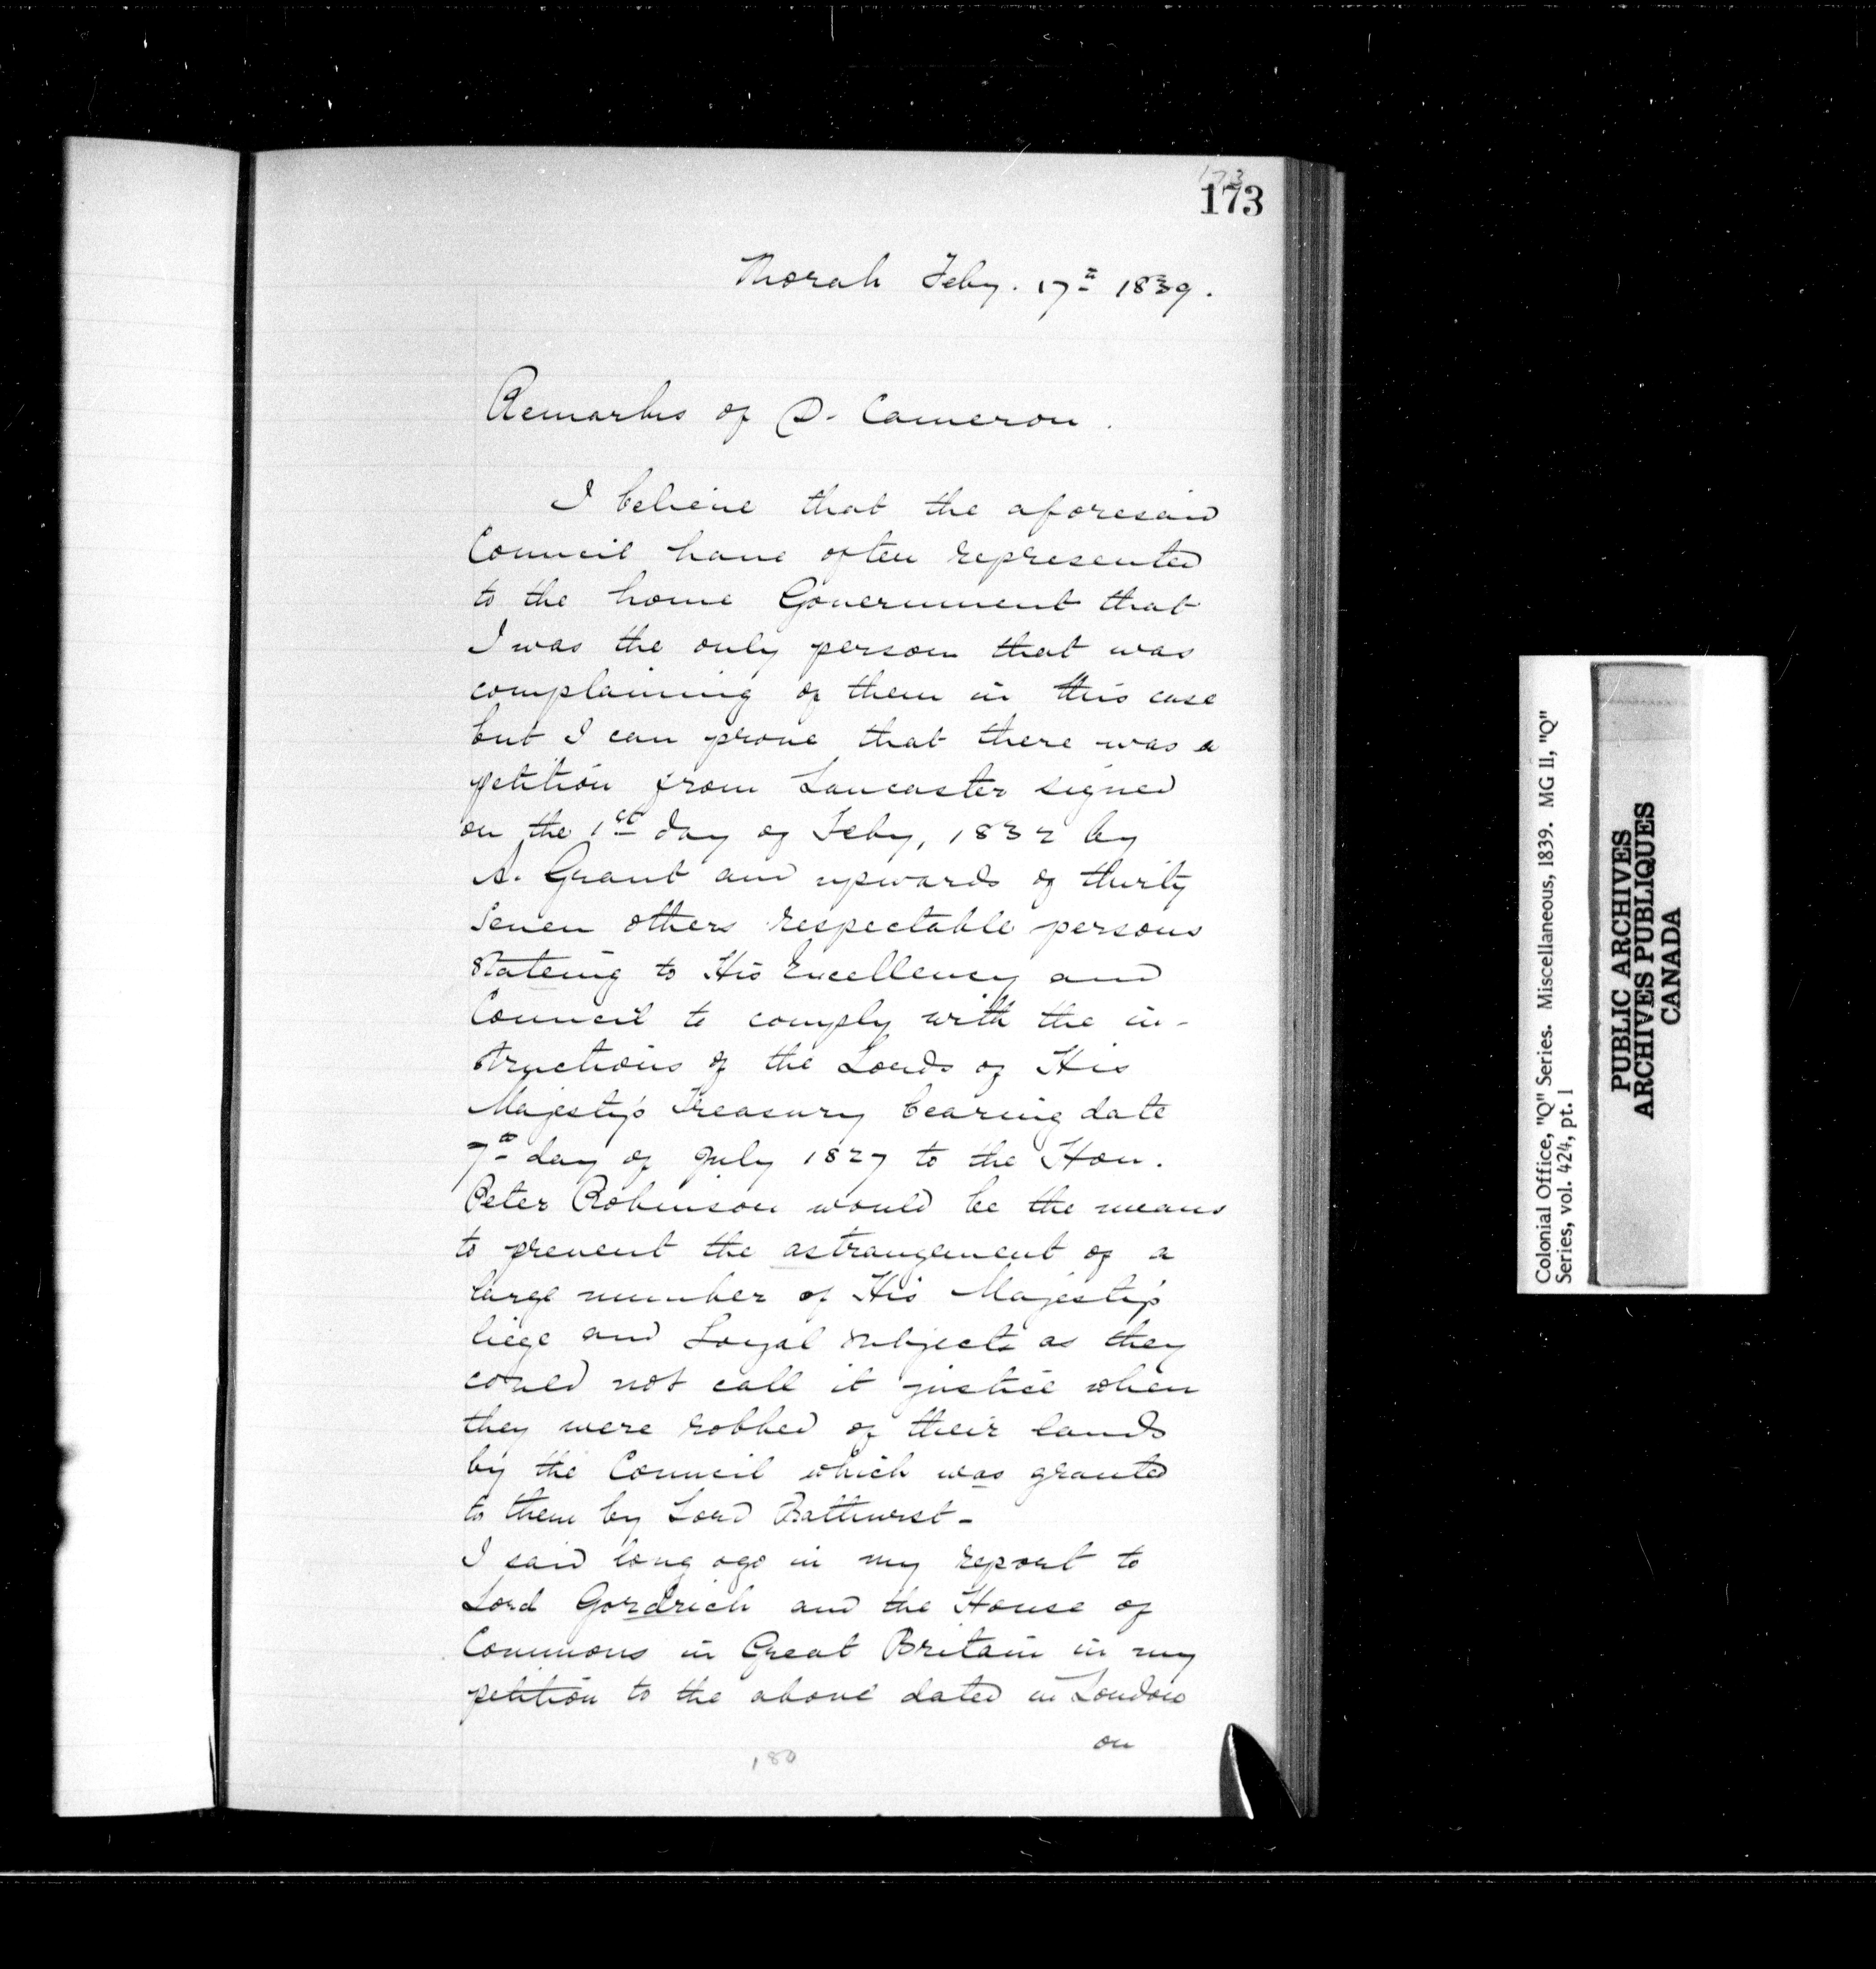 173
173
Thorah Feby. 17th 1839.
Remarks of D. Cameron.
I believe that the aforesaid
Council have often represented
to the home Government that
I was the only person that was
complaining of them in this case
but I can prove that there was a
petition from Lancaster signed
on the 1st day of Feby, 1832 by
A. Grant and upwards of thirty
seven others respectable persons
stateing to His Excellency and
Council to comply with the in-
structions of the Lords of His
Majesty's Treasury bearing date
7th day of July 1827 to the Hon.
Peter Robinson would be the means
to prevent the astrangement of a
large number of His Majesty's
liege and Loyal subjects as they
could not call it justice when
they were robbed of their lands
by the Council which was granted
to them by Lord Bathurst-
I said long ago in my report to
Lord Gordrich and the House of
Commons in Great Britain in my
petition to the above dated in London
on
180
Colonial Office, "Q" Series. Miscellaneous, 1839. MG 11, "Q"
Series, vol. 424, pt. 1
PUBLIC ARCHIVES
ARCHIVES PUBLIQUES
CANADA